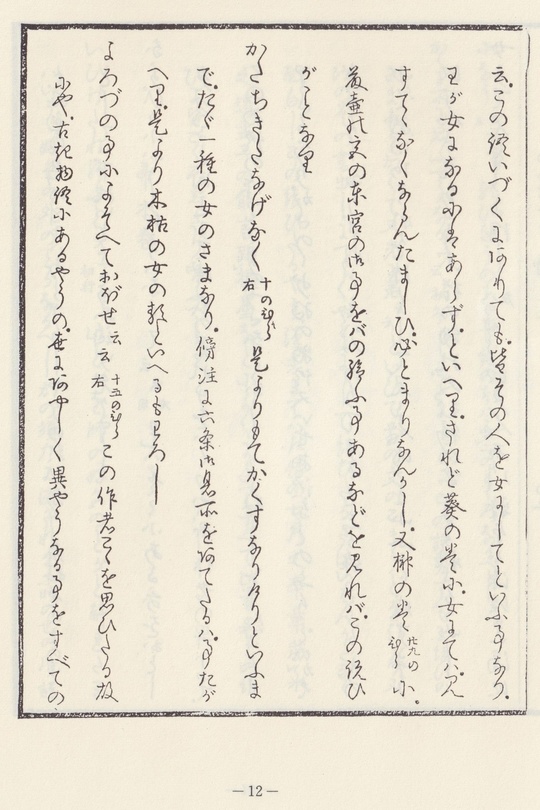 云。この詞いづくにありても。皆その人を女にしてといふ事なり。
王が女になるにはあらず。といへり。されど葵の巻に。女にては見
すてなくならんたましひ。必とまりなんかし。又榊の巻廿九のひらに。
藤壺の文の東宮の御事をバの給ふ事あるなどを見れバ。この説ひ
がことなり
かたちきたなげなく十のひら右 是よりもてかくすなりけりといふま
で。たゞ一種の女のさまなり。傍注に六条御息所をあてたるハ。事たが
へり。是より木枯の女の類といへるもわろし
よろづの事によそへておぼせ云云十五のひら右 この作者こゝを思ひたる故
にや。古記物語にあるやうの。世にあやしく異やうなる事をすべての
－12－